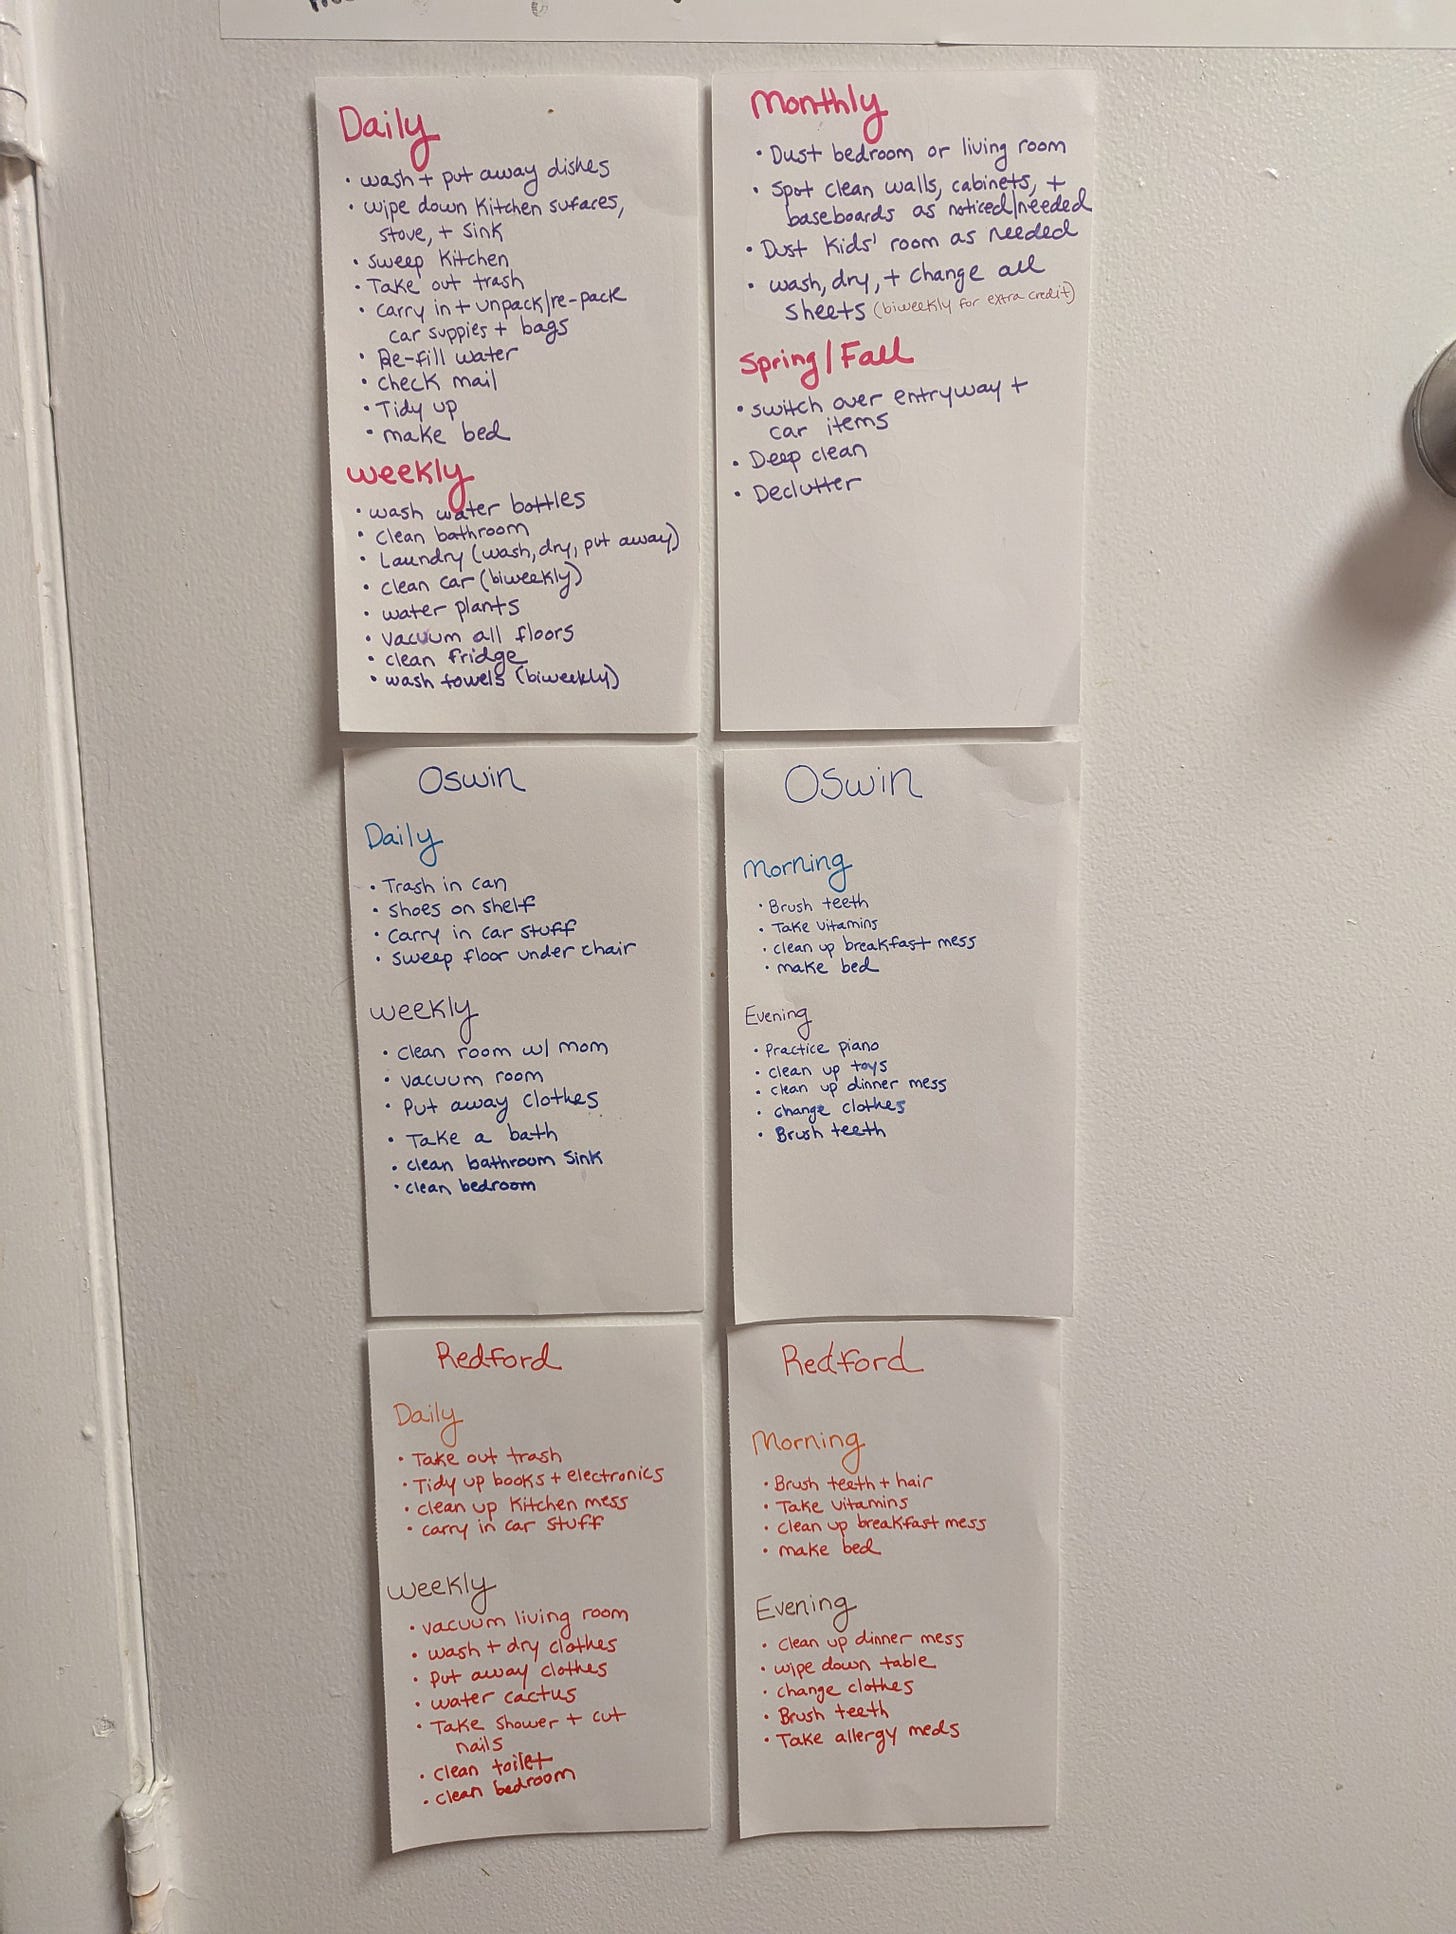 Daily
• wash + put away dishes
• wipe down kitchen sufaces,
stove, + sink
• sweep kitchen
• Take out trash
• carry in + unpack/re-pack
car suppies + bags
• Re-fill water
• check mail
• Tidy up
• make bed
weekly
• wash water bottles
• clean bathroom
• Laundry (wash, dry, put away)
• clean car (biweekly)
• water plants
• vacuum all floors
• clean fridge
• wash towels (biweekly)
Monthly
• Dust bedroom or living room
• Spot clean walls, cabinets, +
baseboards as noticed/needed
• Dust kids' room as needed
• wash, dry, + change all
sheets (biweekly for extra credit)
Spring/Fall
• switch over entryway +
car items
• Deep clean
• Declutter
Oswin
Daily
• Trash in can
• shoes on shelf
• carry in car stuff
• sweep floor under chair
weekly
• clean room w/ mom
• vacuum room
• Put away clothes
• Take a bath
• clean bathroom sink
• clean bedroom
Oswin
Morning
• Brush teeth
• Take vitamins
• clean up breakfast mess
• make bed
Evening
• Practice piano
• clean up toys
• clean up dinner mess
• change clothes
• Brush teeth
Redford
Daily
• Take out trash
• Tidy up books + electronics
• clean up kitchen mess
• carry in car stuff
weekly
• vacuum living room
• wash + dry clothes
• put away clothes
• water cactus
• Take shower + cut
nails
• clean toilet
• clean bedroom
Redford
Morning
• Brush teeth + hair
• Take vitamins
• clean up breakfast mess
• make bed
Evening
• clean up dinner mess
• wipe down table
• change clothes
• Brush teeth
• Take allergy meds